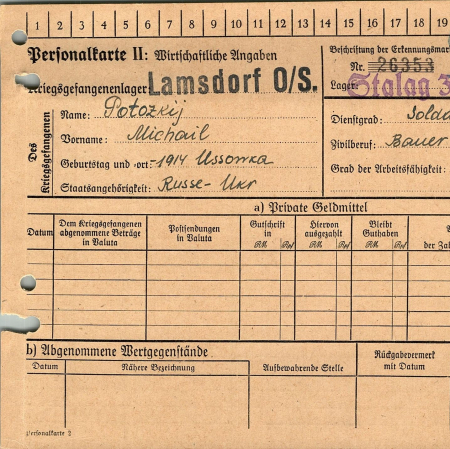 1 2 3 4 5 6 7 8 9 10 11 12 13 14 15 16 17 18 19
Personalkarte II: Wirtschaftliche Angaben
Kriegsgefangenenlager: Lamsdorf O/S.
Beschriftung der Erkennungsmar
Nr. 26353
Lager: Stalag
Des Kriegsgefangenen
Name: Potozkij
Vorname: Michail
Geburtstag und -ort: -1914 Ussowka
Staatsangehörigkeit: Russe-Ukr
Dienstgrad: Solda
Zivilberuf: Bauer
Grad der Arbeitsfähigkeit:
a) Private Geldmittel
Datum
Dem Kriegsgefangenen abgenommene Beträge in Valuta
Postsendungen in Valuta
Gutschrift in
RM Rpf
Hiervon ausgezahlt
RM Rpf
Bleibt Guthaben
RM Rpf
der Za
b) Abgenommene Wertgegenstände
Datum
Nähere Bezeichnung
Aufbewahrende Stelle
Rückgabevermerk mit Datum
Personalkarte 2